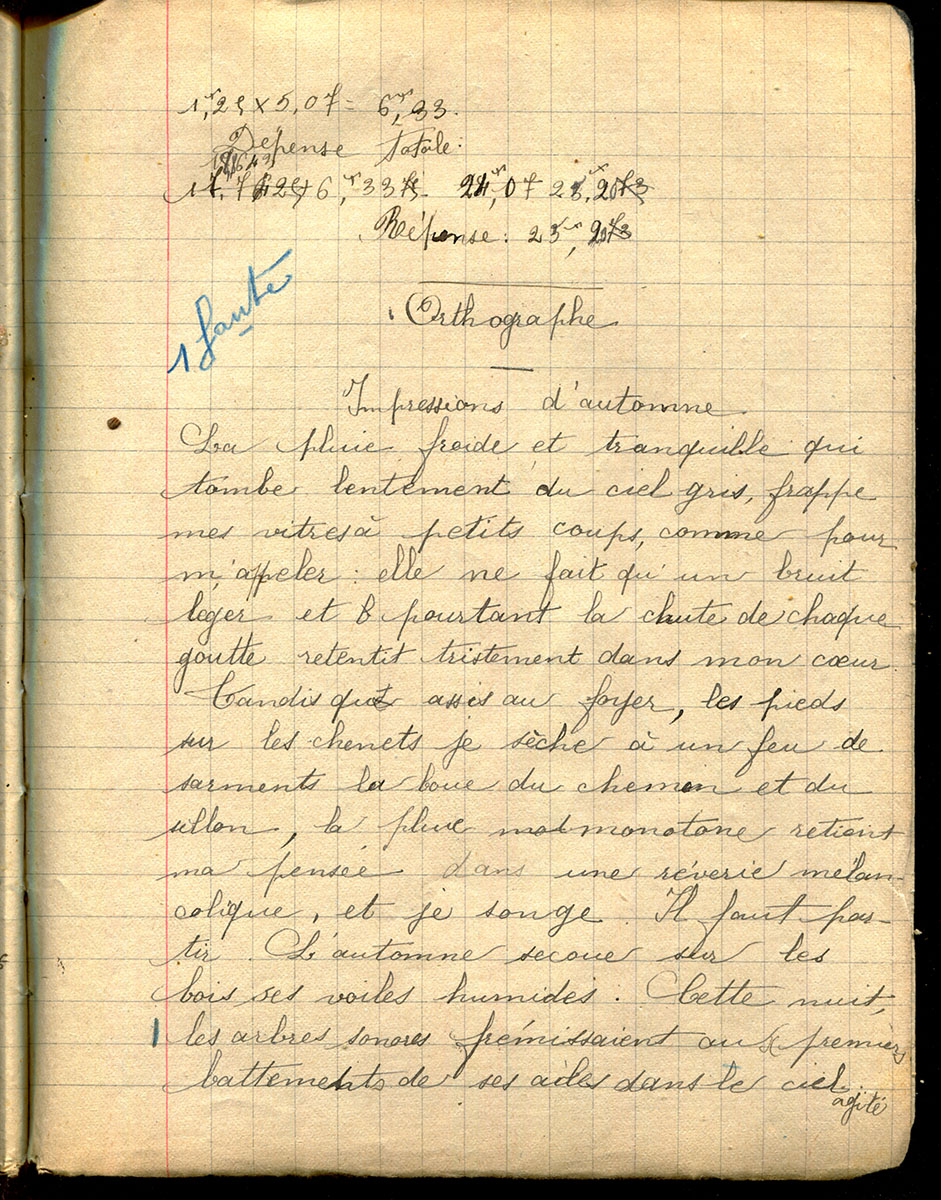 1,25 x 5,07 = 6,33.
Dépense totale:
6,33 24,07 23,20
Réponse: 23,20
1 faute
Orthographe
Impressions d'automne.
La pluie froide et tranquille qui
tombe lentement du ciel gris, frappe
mes vitres à petits coups, comme pour
m'appeler: elle ne fait qu'un bruit
léger et pourtant la chute de chaque
goutte retentit tristement dans mon cœur.
Tandis que assis au foyer, les pieds
sur les chenets je sèche à un feu de
sarments la boue du chemin et du
sillon, la pluie monotone retient
ma pensée dans une rêverie mélan-
colique, et je songe. Il faut par-
tir. L'automne secoue sur les
bois ses voiles humides. Cette nuit,
les arbres sonores frémissaient aux premiers
battements de ses ailes dans le ciel
agité